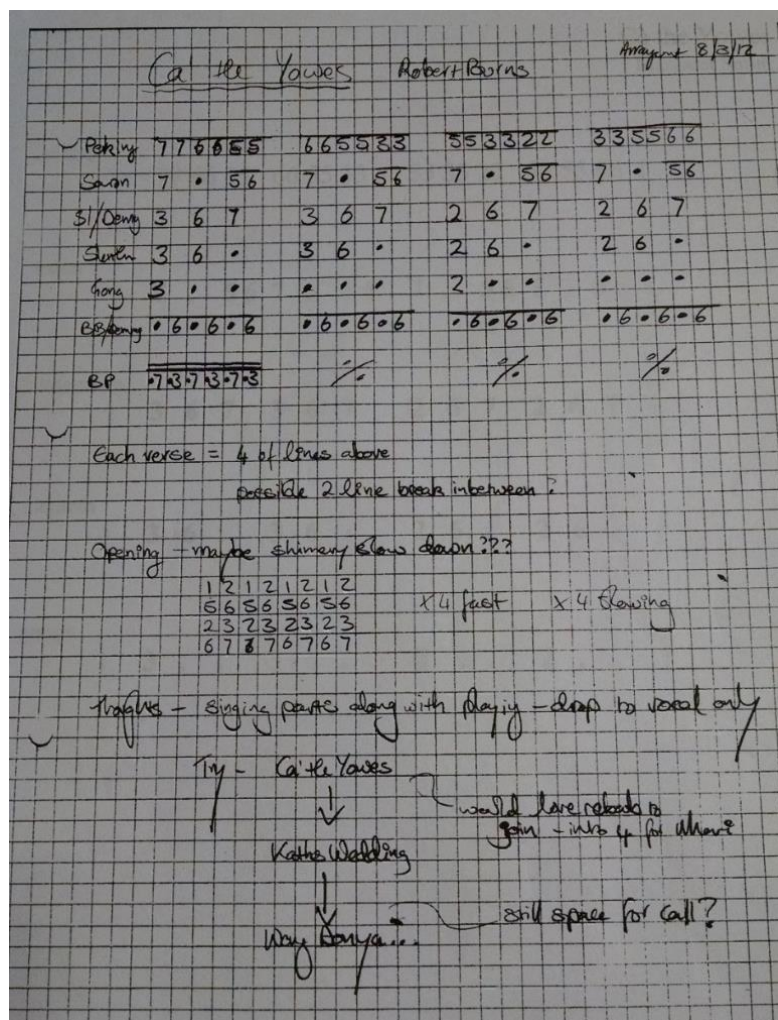 Ca' the Yowes Robert Burns Arrangement 8/3/12
Peking 7 7 6 6 5 5 6 6 5 5 3 3 5 5 3 3 2 2 3 3 5 5 6 6
Saron 7 • 5 6 7 • 5 6 7 • 5 6 7 • 5 6
Sl/Demg 3 6 7 3 6 7 2 6 7 2 6 7
Slentem 3 6 • 3 6 • 2 6 • 2 6 •
Gong 3 • • • • • 2 • • • • •
BB/Demg • 6 • 6 • 6 • 6 • 6 • 6 • 6 • 6 • 6 • 6 • 6 • 6
BP •7•3•7•3•7•3 % % %
Each verse = 4 of lines above
possible 2 line break inbetween?
Opening - maybe shimery slow down???
1 2 1 2 1 2 1 2
5 6 5 6 5 6 5 6 x4 fast x4 slowing
2 3 2 3 2 3 2 3
6 7 6 7 6 7 6 7
Thoughts - singing parts along with playing - drop to vocal only
Try - Ca' the Yowes
would love to
join - into 4 for
Kaths Wedding
still space for call?